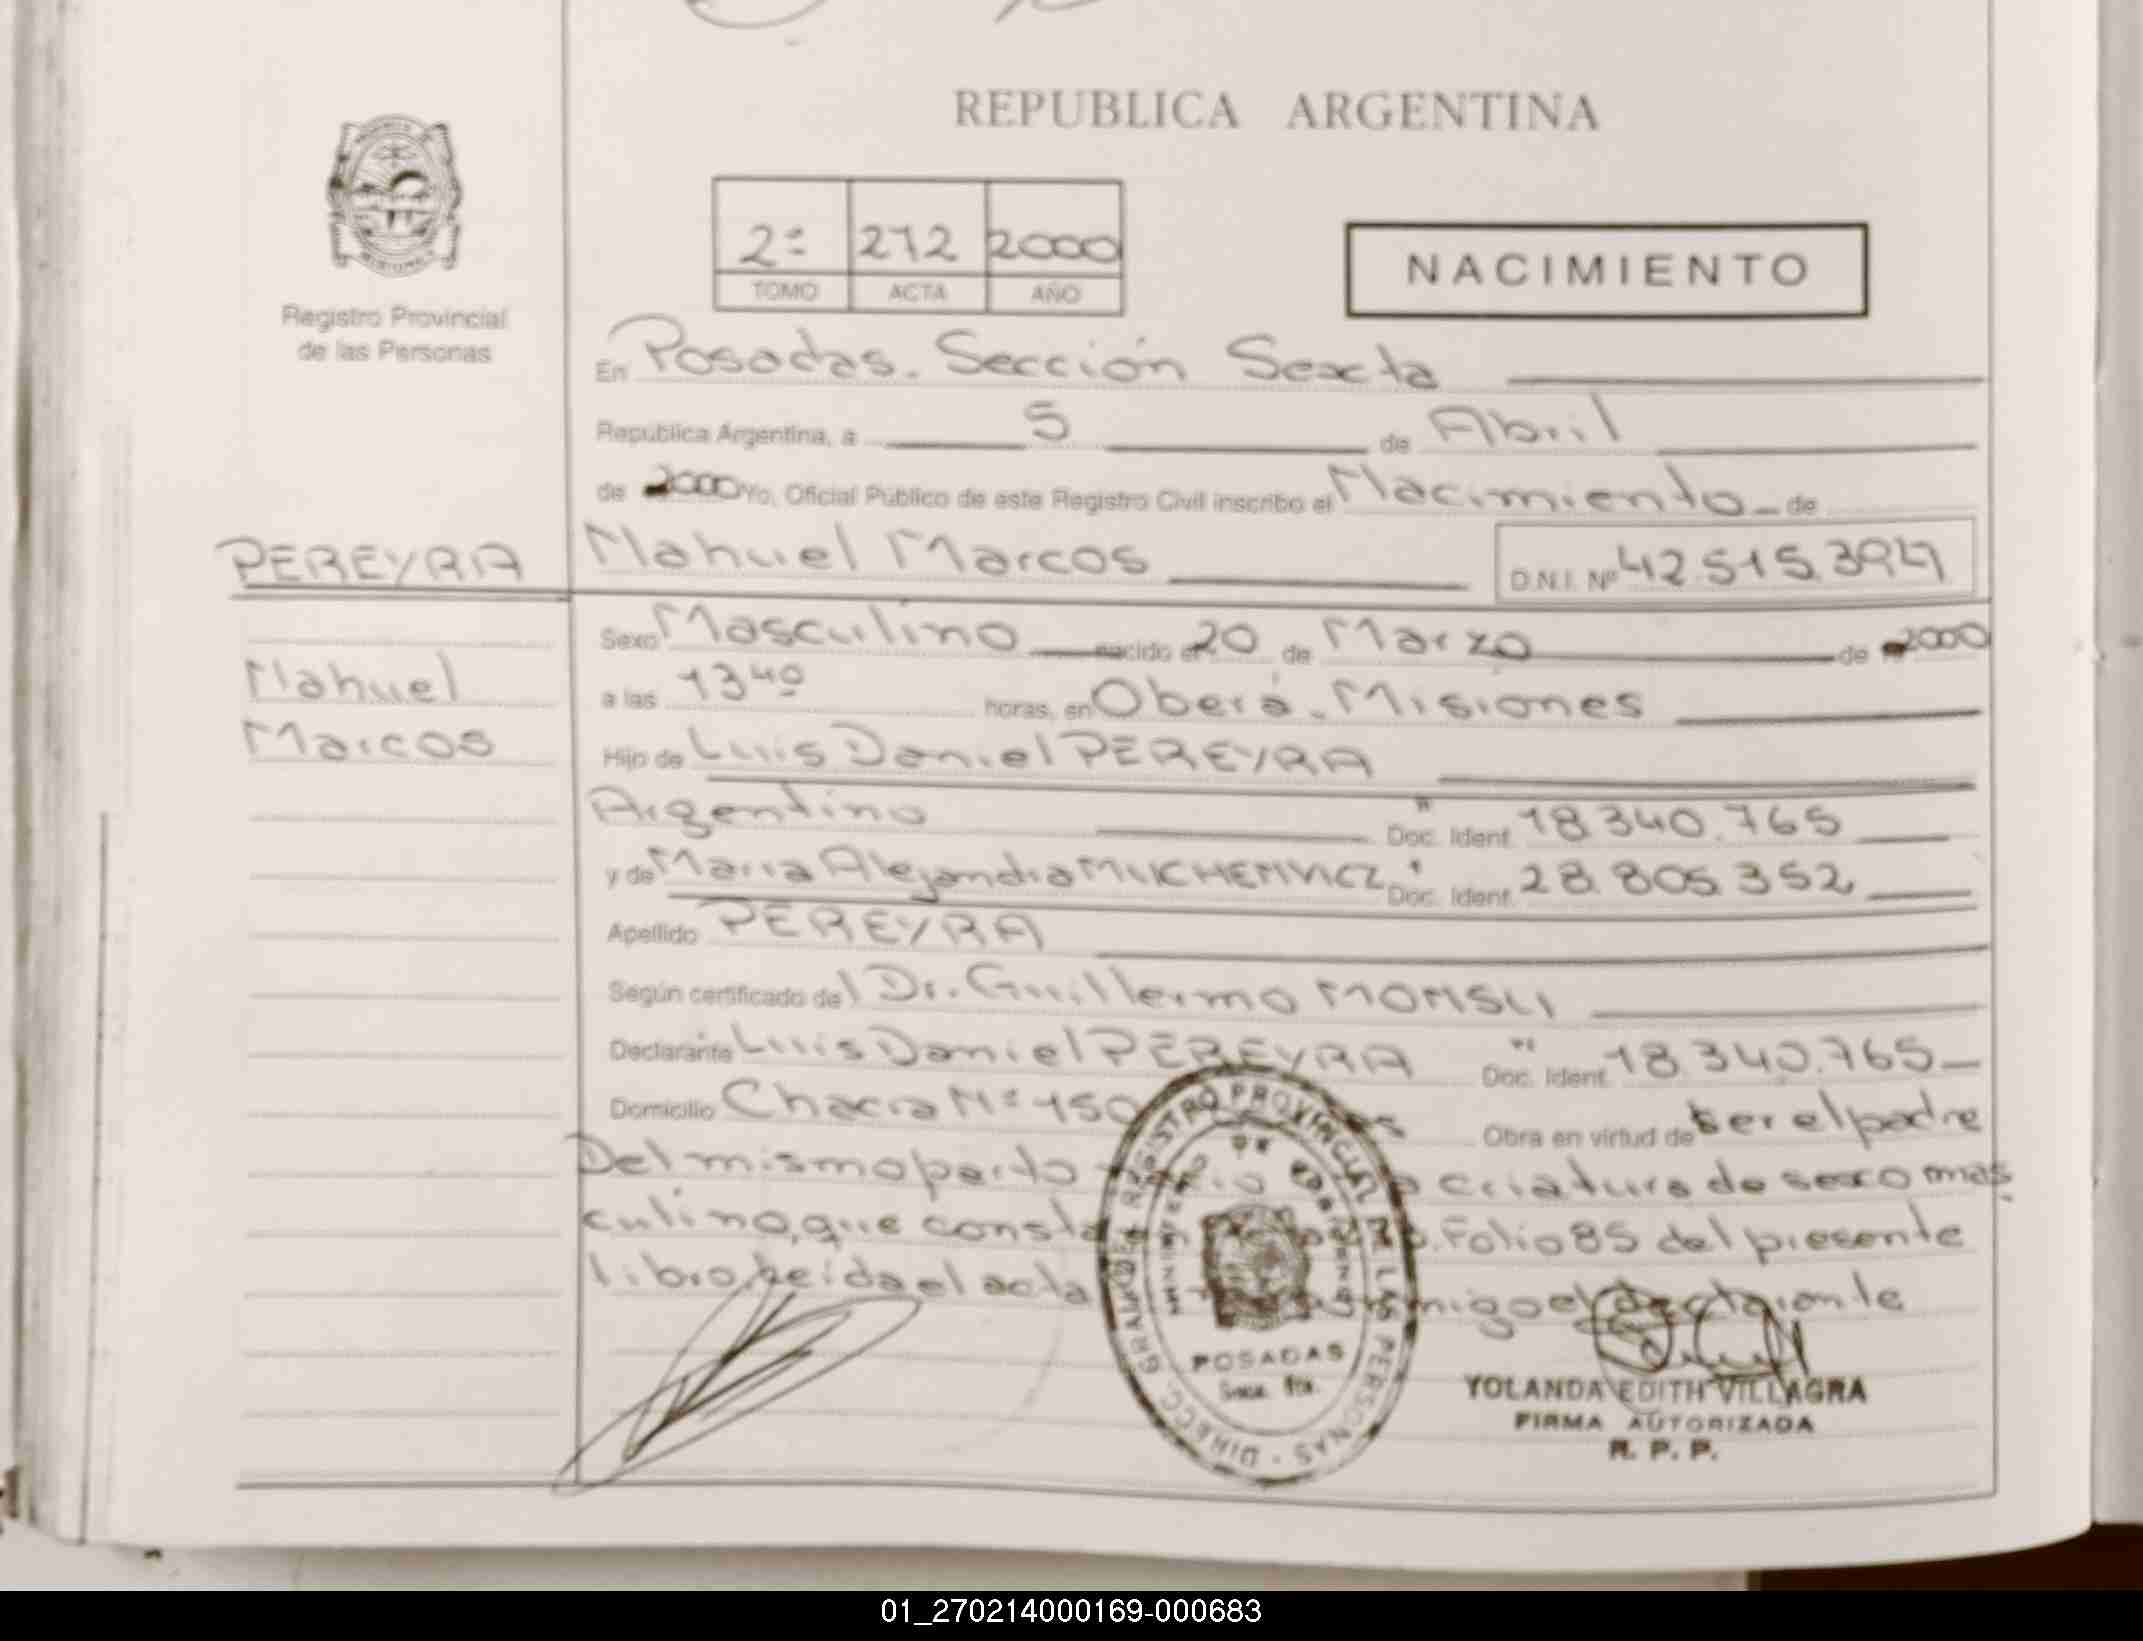 REPUBLICA ARGENTINA
2ª 272 2000
TOMO ACTA AÑO
NACIMIENTO
Registro Provincial
de las Personas
En Posadas. Sección Sexta
República Argentina, a 5 de Abril
de 2000 Yo, Oficial Público de este Registro Civil inscribo el Nacimiento de
PEREYRA
Nahuel Marcos D.N.I. Nº
Sexo Masculino nacido el 20 de Marzo de 2000
Nahuel
Marcos
a las 13 40 horas, en Oberá. Misiones
Hijo de Luis Daniel PEREYRA
Argentino Doc. Ident. 18.340.765
y de Maria Alejandra Doc. Ident. 28.805.352
Apellido PEREYRA
Según certificado del Dr. Guillermo
Declarante Luis Daniel PEREYRA Doc. Ident. 18.340.765
Domicilio Chacra Nº 150 Obra en virtud de ser el padre
Del mismo parto criatura de sexo mas
culino, que consta Folio 85 del presente
libro. Leida el acta el declarante
DIRECC. GRAL. DEL REGISTRO PROVINCIAL DE LAS PERSONAS
POSADAS
YOLANDA EDITH VILLAGRA
FIRMA AUTORIZADA
R. P. P.
01_270214000169-000683